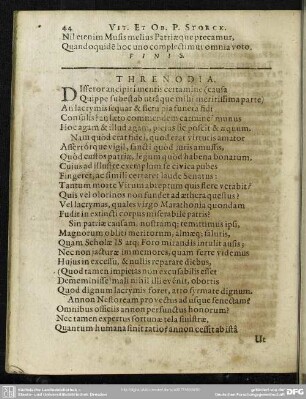 44 VIT. ET OB. P. STORCK.
Nil etenim Musis melius Patriæque precamur,
Quandoquidē hoc uno complectimur omnia voto.
FINIS.
THRENODIA.
DIsseror ancipiti mentis certamine; causa
Quippe subest ab utrâque mihi meritissima parte,
An lacrymis sequar & fletu pia funera fidi
Consulis? an læto commendem carmine? munus
Hoc agam & illud agam, pietas sic poscit & æquum.
Nam quòd erat fidei, quòd erat virtutis amator
Assertórque vigil, sancti quod juris amussis,
Quòd custos patriæ, legum quod habena bonarum,
Cujus ad illustre exemplum se civica pubes
Fingeret, ac simili certaret laude Senatus:
Tantum morte Virum abreptum quis flere verabit?
Quis vel olorinos non fundet ad æthera questus?
Vel lacrymas, quales virgo Marathonia quondam
Fudit in extincti corpus miserabile patris?
Sin patriæ causam, nostramq; remittimus ipsi,
Magnorum oblitei meritorum, almæq; salutis,
Quam Scholæ IS atq; Foro mirandis intulit ausis;
Nec non jacturæ immemores, quam ferre videmus
Hujus in excessu, & nullis reparare diebus,
(Quod tamen impietas non excusabilis esset
Dememinisse) mali nihil illi evênit, obortis
Quod dignum lacrymis foret, atro syrmate dignum.
Annon Nestoream provectus ad usque senectam?
Omnibus officiis annon perfunctus honorum?
Nec tamen expertus fortunæ tela sinistræ,
Quantum humana sinit ratio? annon cessit ab istâ
Ut